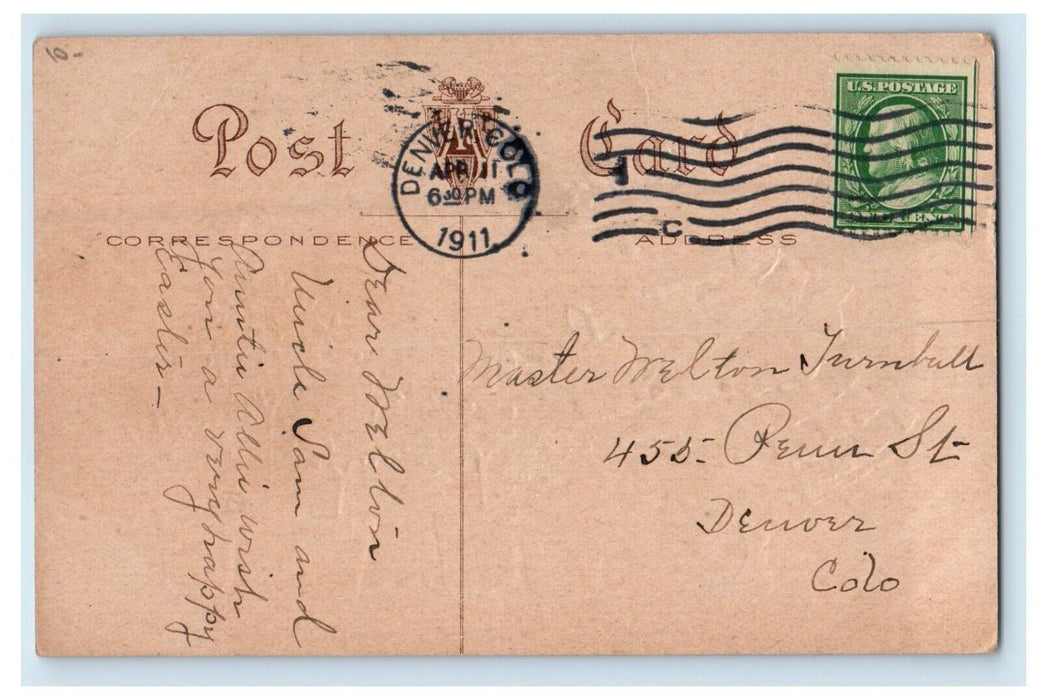 6-
Post Card
DENVER COLO
APR 11
6 30 PM
1911
C
U.S. POSTAGE
CORRESPONDENCE
ADDRESS
Dear Welton
Uncle Sam and
Auntie Allie wish
you a very happy
Easter—
Master Welton Turnbull
455- Penn St-
Denver
Colo